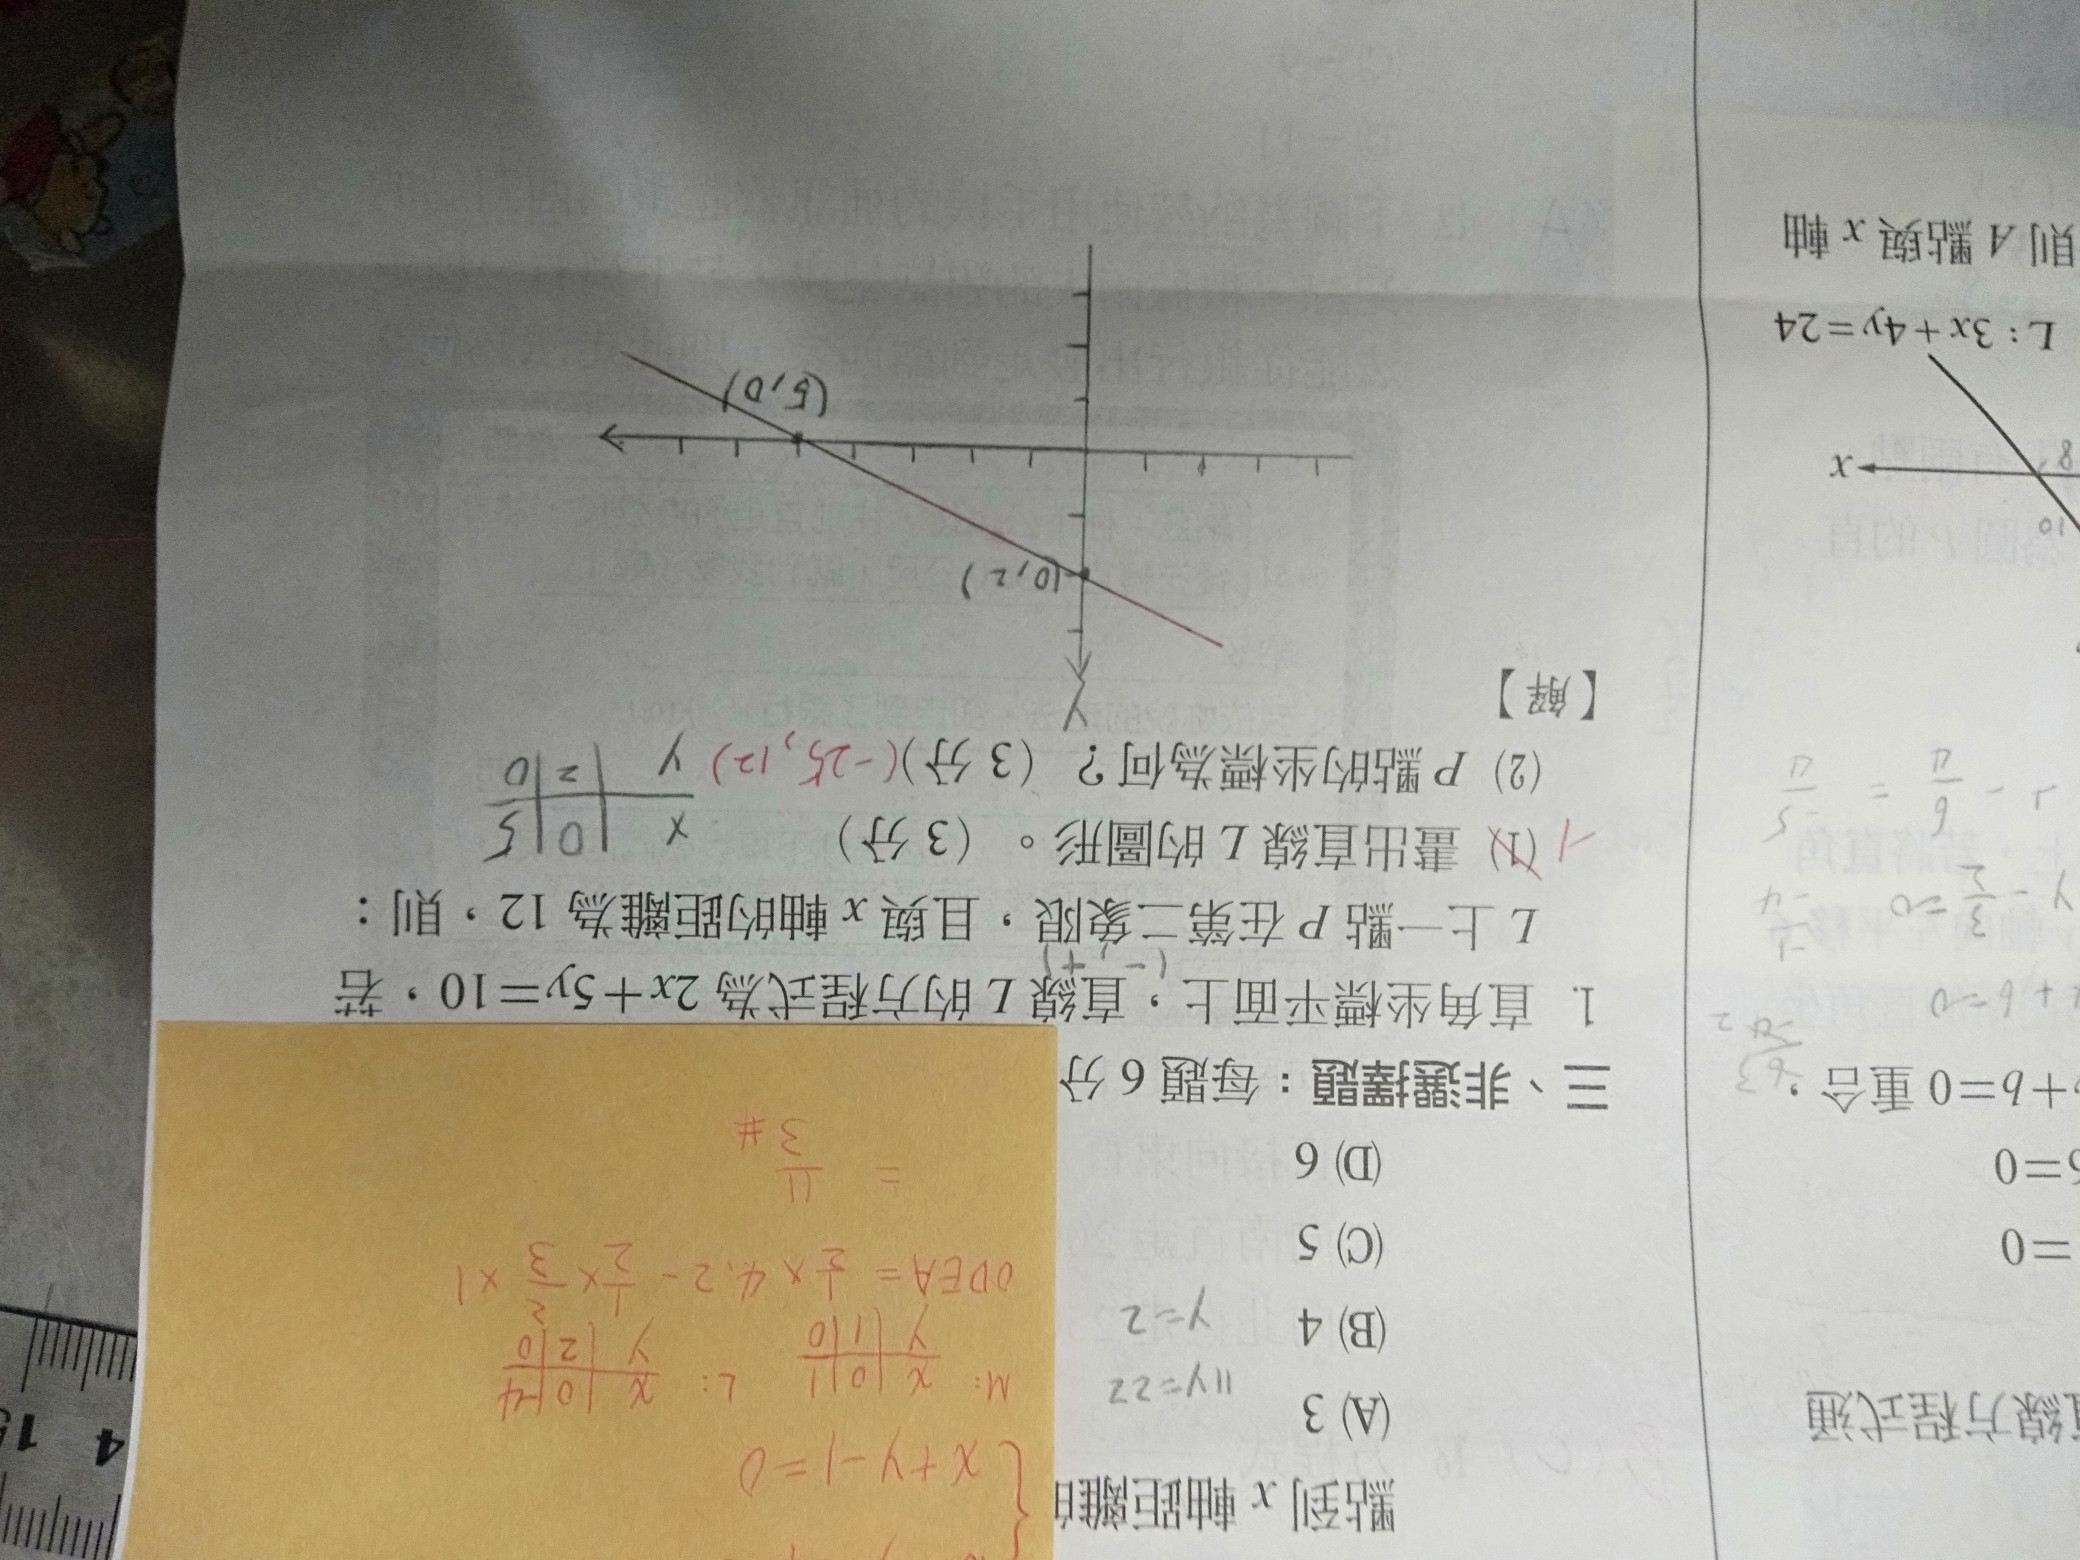 點到 x 軸距離
(A) 3
11y=22
(B) 4
y=2
(C) 5
(D) 6
三、非選擇題:每題 6 分
1. 直角坐標平面上,直線 L 的方程式為 2x+5y=10,若
(-,+)
L 上一點 P 在第二象限,且與 x 軸的距離為 12,則:
-1
(1) 畫出直線 L 的圖形。(3 分)
x 0 5
(2) P 點的坐標為何?(3 分)(-25,12)
y 2 0
【解】
Y
(0,2)
(5,0)
x+y-1=0
M: x 0 1
y 1 0
L: x 0 -4
y 2 0
ODEA = 1/2 × 4.2 - 1/2 × 2/3 × 1
= 11/3 #
直線方程式通
=0
6=0
+b=0 重合,
x+b=0
y-3/2=0
-6/11 = -5/11
10
8
x
L:3x+4y=24
則 A 點與 x 軸
4 15